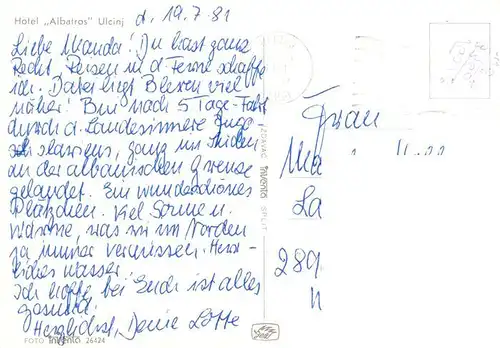 Hotel „Albatros" Ulcinj
d. 19.7.81
Liebe Wanda! Du hast ganz
Recht. Reisen in d Ferne schaffe
ich. Dabei liegt Blexen viel
näher! Bin nach 5 Tage-Fahrt
durch d. Landesinnere Jugo-
slawiens, ganz im Süden
an der albanischen Grenze
gelandet. Ein wunderschönes
Plätzchen. Viel Sonne u.
Wärme, was wir im Norden
ja immer vermissen. Herr-
liches Wasser.
Ich hoffe bei Euch ist alles
gesund.
Herzlichst, Deine Lotte
FOTO Inventa 26424
IZDAVAČ Inventa SPLIT
Frau
Wa
La
289